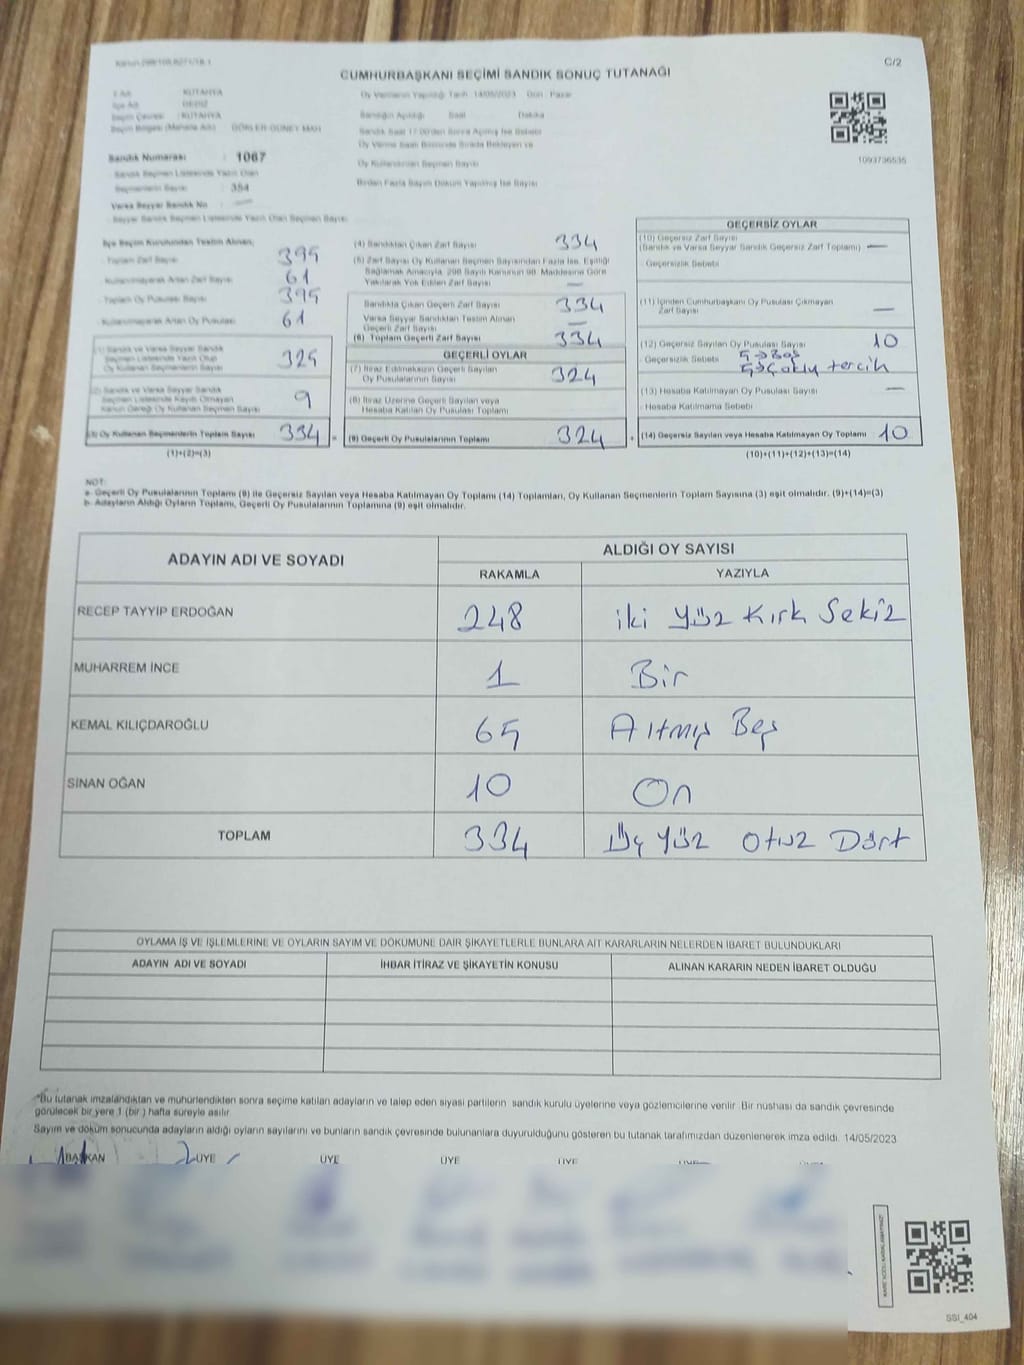 C/2
CUMHURBAŞKANI SEÇİMİ SANDIK SONUÇ TUTANAĞI
İl Adı KÜTAHYA
İlçe Adı GEDİZ
Seçim Çevresi : KÜTAHYA
Oy Vermenin Yapıldığı Tarih :14/05/2023 Gün : Pazar
Sandığın Açıldığı Saat Dakika
Oy Kullandırılan Seçmen Sayısı
Birden Fazla Sayım Döküm Yapılmış İse Sayısı
1093736535
Sandık Numarası : 1067
Sandık Seçmen Listesinde Yazılı Olan
Seçmenlerin Sayısı : 354
Varsa Seyyar Sandık No : —
İlçe Seçim Kurulundan Teslim Alınan;
Toplam Zarf Sayısı 395
Kullanılmayarak Artan Zarf Sayısı 61
Toplam Oy Pusulası Sayısı 395
Kullanılmayarak Artan Oy Pusulası 61
(1) Sandık ve Varsa Seyyar Sandık
Seçmen Listesinde Yazılı Olup
Oy Kullanan Seçmenlerin Sayısı 325
(2) Sandık ve Varsa Seyyar Sandık
Seçmen Listesinde Kayıtlı Olmayan
Kanun Gereği Oy Kullanan Seçmen Sayısı 9
(3) Oy Kullanan Seçmenlerin Toplam Sayısı 334
(1)+(2)=(3)
(4) Sandıktan Çıkan Zarf Sayısı 334
(5) Zarf Sayısı Oy Kullanan Seçmen Sayısından Fazla İse, Eşitliği
Sağlamak Amacıyla, 298 Sayılı Kanunun 98. Maddesine Göre
Yakılarak Yok Edilen Zarf Sayısı —
Sandıkta Çıkan Geçerli Zarf Sayısı 334
Varsa Seyyar Sandıktan Teslim Alınan
Geçerli Zarf Sayısı —
(6) Toplam Geçerli Zarf Sayısı 334
GEÇERLİ OYLAR
(7) İtiraz Edilmeksizin Geçerli Sayılan
Oy Pusulalarının Sayısı 324
(8) İtiraz Üzerine Geçerli Sayılan veya
Hesaba Katılan Oy Pusulası Toplamı
(9) Geçerli Oy Pusulalarının Toplamı 324
GEÇERSİZ OYLAR
(10) Geçersiz Zarf Sayısı
(Sandık ve Varsa Seyyar Sandık Geçersiz Zarf Toplamı) —
Geçersizlik Sebebi
(11) İçinden Cumhurbaşkanı Oy Pusulası Çıkmayan
Zarf Sayısı —
(12) Geçersiz Sayılan Oy Pusulası Sayısı 10
Geçersizlik Sebebi 5→Boş
5→Çoklu tercih
(13) Hesaba Katılmayan Oy Pusulası Sayısı —
Hesaba Katılmama Sebebi
(14) Geçersiz Sayılan veya Hesaba Katılmayan Oy Toplamı 10
(10)+(11)+(12)+(13)=(14)
NOT:
a- Geçerli Oy Pusulalarının Toplamı (9) ile Geçersiz Sayılan veya Hesaba Katılmayan Oy Toplamı (14) Toplamları, Oy Kullanan Seçmenlerin Toplam Sayısına (3) eşit olmalıdır. (9)+(14)=(3)
b- Adayların Aldığı Oyların Toplamı, Geçerli Oy Pusulalarının Toplamına (9) eşit olmalıdır.
ADAYIN ADI VE SOYADI
ALDIĞI OY SAYISI
RAKAMLA YAZIYLA
RECEP TAYYİP ERDOĞAN 248 iki Yüz Kırk Sekiz
MUHARREM İNCE 1 Bir
KEMAL KILIÇDAROĞLU 65 Altmış Beş
SİNAN OĞAN 10 On
TOPLAM 334 Üç Yüz Otuz Dört
OYLAMA İŞ VE İŞLEMLERİNE VE OYLARIN SAYIM VE DÖKÜMÜNE DAİR ŞİKAYETLERLE BUNLARA AİT KARARLARIN NELERDEN İBARET BULUNDUKLARI
ADAYIN ADI VE SOYADI İHBAR İTİRAZ VE ŞİKAYETİN KONUSU ALINAN KARARIN NEDEN İBARET OLDUĞU
*Bu tutanak imzalandıktan ve mühürlendikten sonra seçime katılan adayların ve talep eden siyasi partilerin sandık kurulu üyelerine veya gözlemcilerine verilir. Bir nüshası da sandık çevresinde
görülecek bir yere 1 (bir ) hafta süreyle asılır.
Sayım ve döküm sonucunda adayların aldığı oyların sayılarını ve bunların sandık çevresinde bulunanlara duyurulduğunu gösteren bu tutanak tarafımızdan düzenlenerek imza edildi. 14/05/2023
BAŞKAN ÜYE ÜYE ÜYE ÜYE
SSI_404